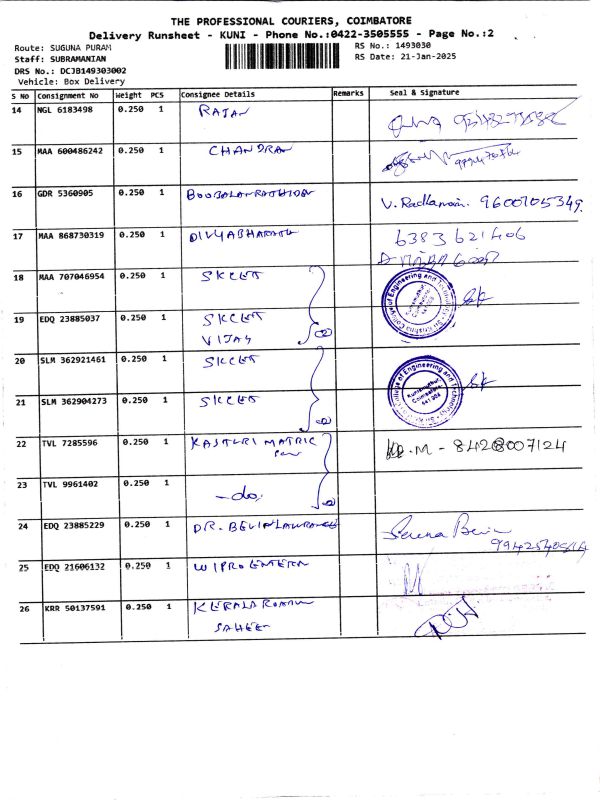 THE PROFESSIONAL COURIERS, COIMBATORE
Delivery Runsheet - KUNI - Phone No.:0422-3505555 - Page No.:2
Route: SUGUNA PURAM
RS No.: 1493030
Staff: SUBRAMANIAN
RS Date: 21-Jan-2025
DRS No.: DCJB149303002
Vehicle: Box Delivery
S No Consignment No Weight PCS Consignee Details Remarks Seal & Signature
14 NGL 6183498 0.250 1 RAJAN
15 MAA 600486242 0.250 1 CHANDRAN
16 GDR 5360905 0.250 1 V. Radhamani. 9600705349.
17 MAA 868730319 0.250 1 DIVYABHARATHI 6383621406
18 MAA 707046954 0.250 1 SKCET
19 EDQ 23885037 0.250 1 SKCET
VIJAY
20 SLM 362921461 0.250 1 SKCET
21 SLM 362904273 0.250 1 SKCET
22 TVL 7285596 0.250 1 KASTURI MATRIC M - 8428007124
23 TVL 9961402 0.250 1 -do-
24 EDQ 23885229 0.250 1 DR. BEVIN LAWRANCE
25 EDQ 21606132 0.250 1 WIPRO
26 KRR 50137591 0.250 1 KERALA